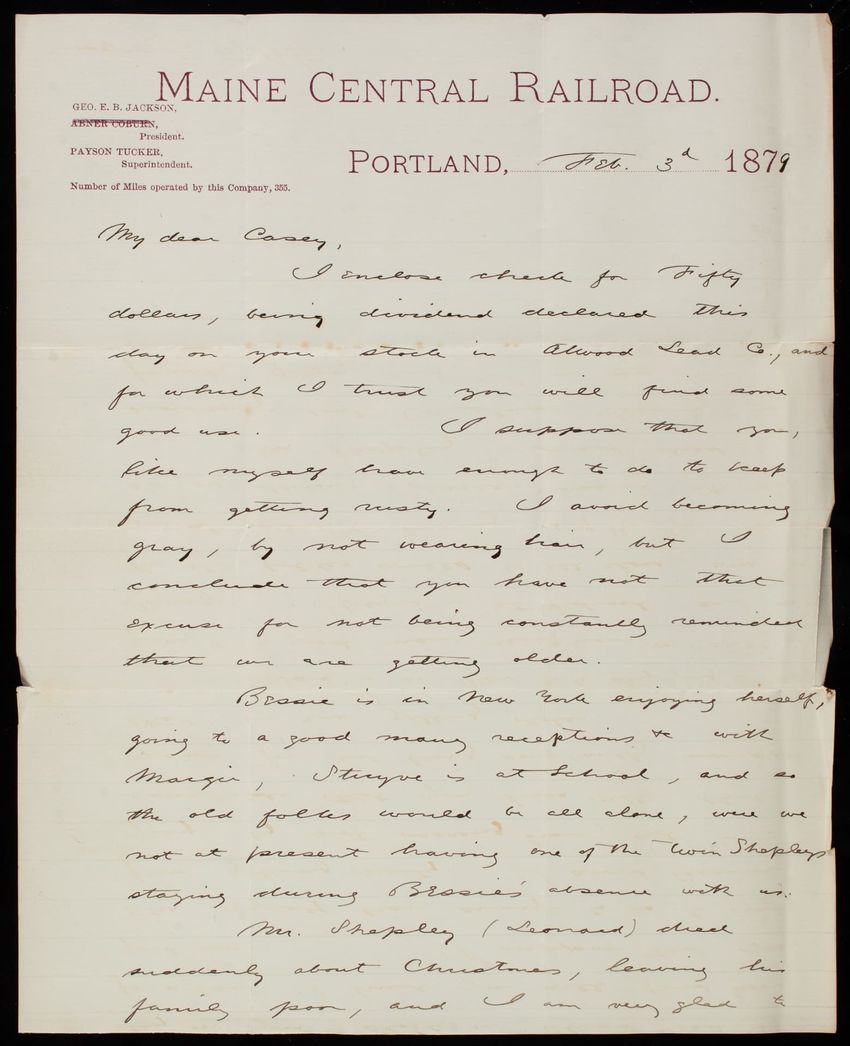 MAINE CENTRAL RAILROAD.
GEO. E. B. JACKSON,
ABNER COBURN,
President.
PAYSON TUCKER,
Superintendent.
PORTLAND, Feb. 3d 1879
Number of Miles operated by this Company, 355.
My dear Casey,
I enclose check for Fifty
dollars, being dividend declared this
day on your stock in Atwood Lead Co., and
for which I trust you will find some
good use. I suppose that you,
like myself have enough to do to keep
from getting rusty. I avoid becoming
gray, by not wearing hair, but I
conclude that you have not that
excuse for not being constantly reminded
that we are getting older.
Bessie is in New York enjoying herself,
going to a good many receptions &c with
Margie, Stuyve is at School, and so
the old folks would be all alone, were we
not at present having one of the twin Shepleys
staying during Bessie's absence with us.
Mr. Shepley (Leonard) died
suddenly about Christmas, leaving his
family poor, and I am very glad to